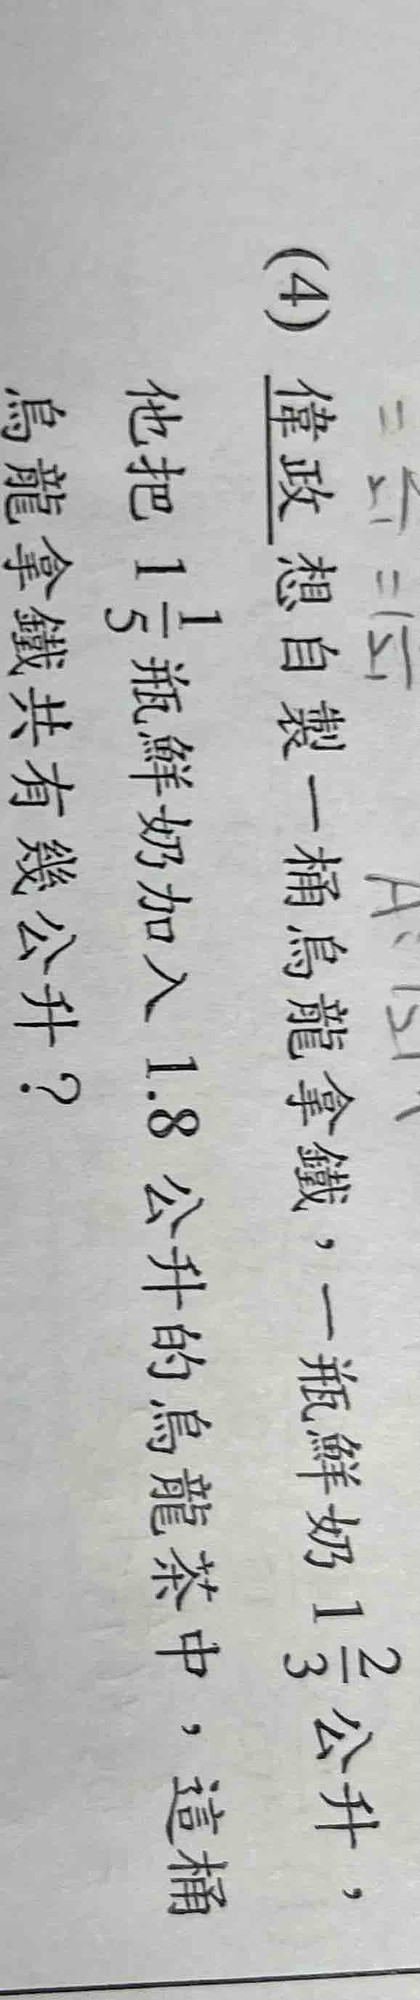 (4) 偉政想自製一桶烏龍拿鐵，一瓶鮮奶 1 2/3 公升，
他把 1 1/5 瓶鮮奶加入 1.8 公升的烏龍茶中，這桶
烏龍拿鐵共有幾公升？